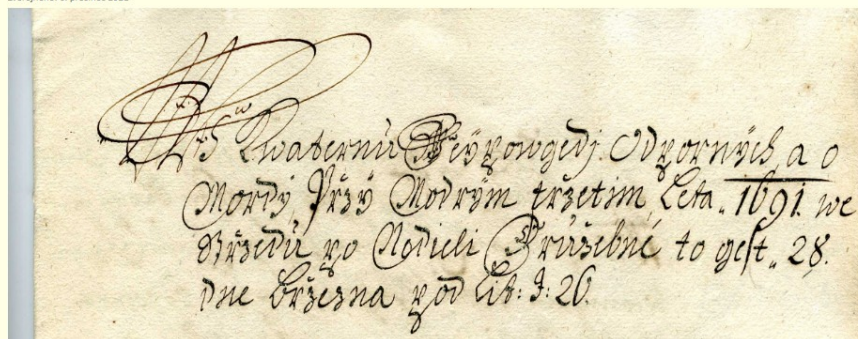 Kwaternu Weypowgedj Odporných a o
Mordý Przý Modrým trzetim Leta. 1691. we
Strzedú po Nedieli Družebné to gest. 28.
dne Brzezna pod Lit: J: 26.